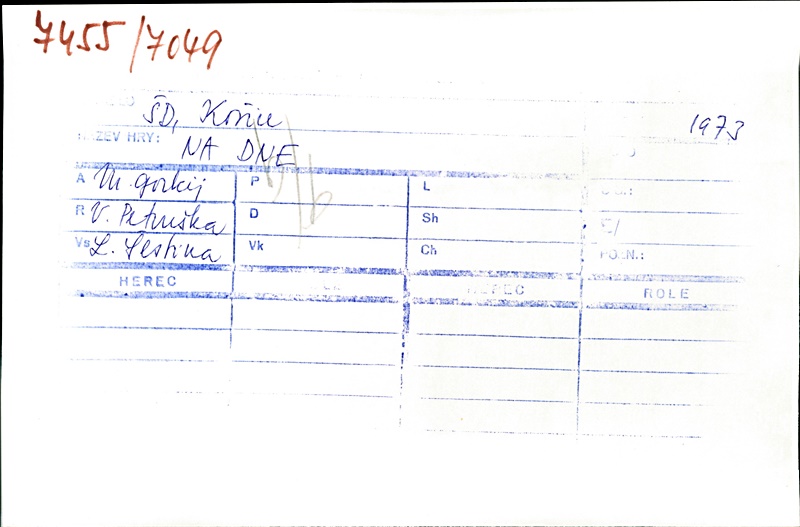 7455/7049
ŠD, Košice 1973
NÁZEV HRY: NA DNE
A M. Gorkij P L
R V. Petruška D Sh
Vs L. Šestina Vk Ch POZN.:
HEREC HEREC ROLE